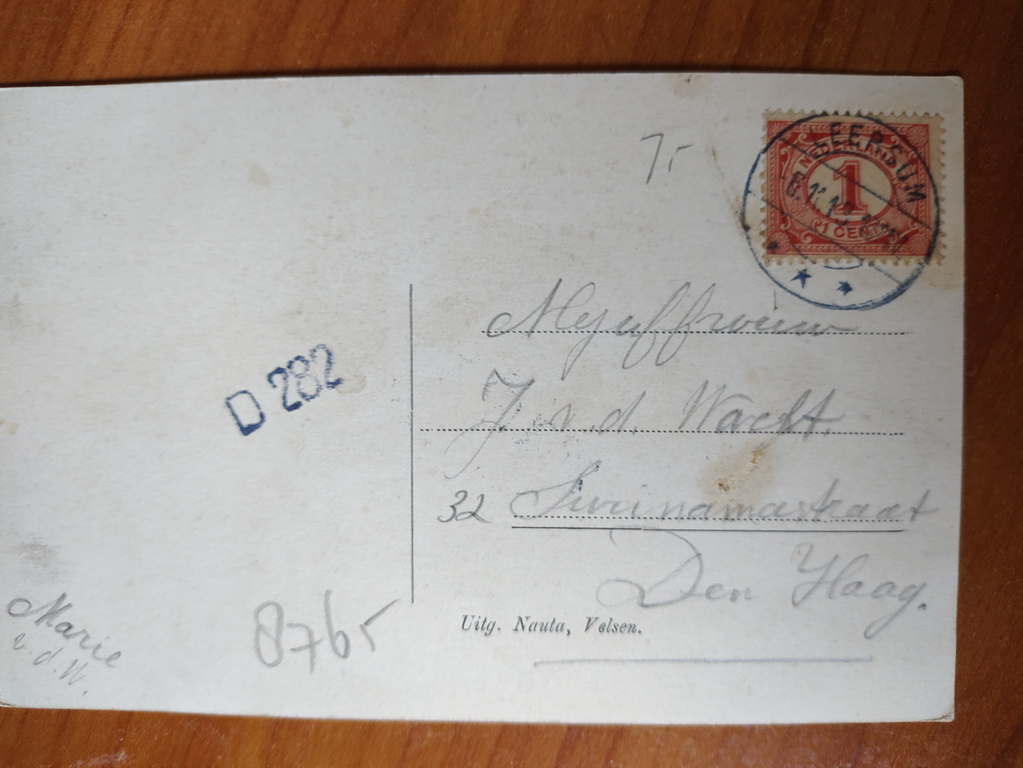 7,-
EERSUM
NEDERLAND
1
1 CENT
D 282
Mejuffrouw
J. v. d. Wacht.
32 Surinamastraat
Den Haag.
Uitg. Nauta, Velsen.
8765
Marie
v. d. W.